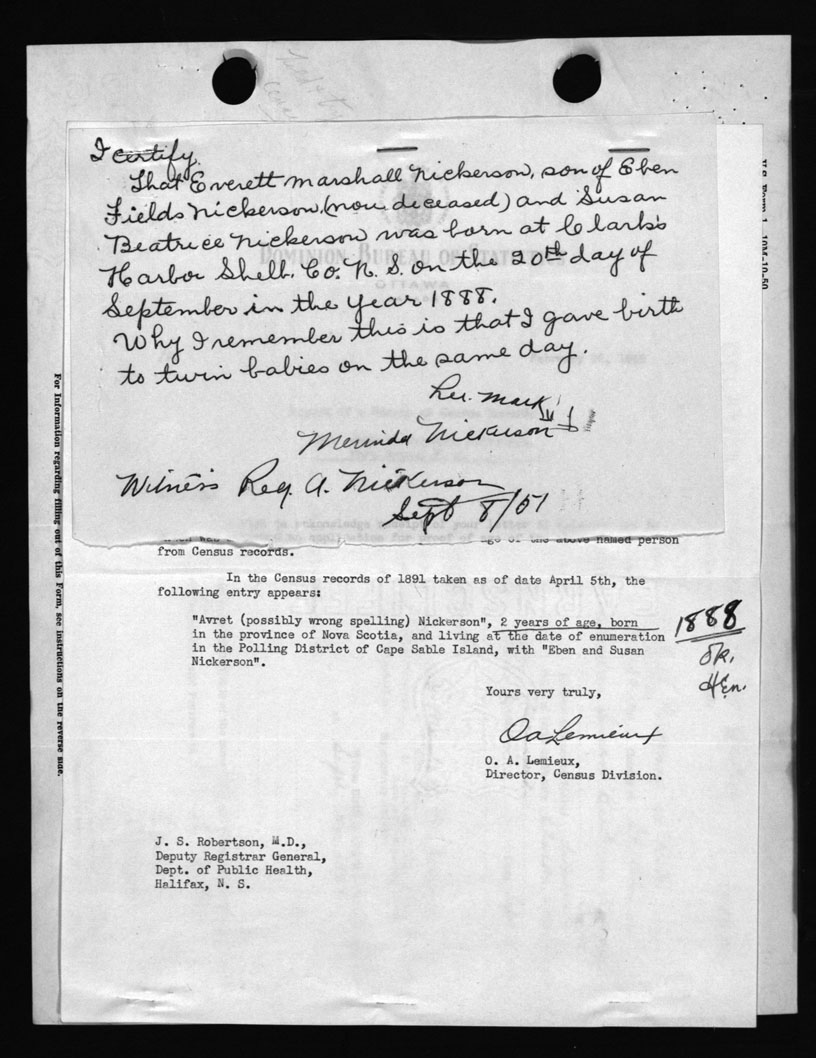 I certify.
That Everett Marshall Nickerson, son of Eben
Fields Nickerson, (now deceased) and Susan
Beatrice Nickerson was born at Clark's
Harbor Shelb. Co. N. S. on the 20th day of
September in the year 1888.
Why I remember this is that I gave birth
to twin babies on the same day.
her mark
Merinda Nickerson
Witness Reg. A. Nickerson
Sept 8/51
DOMINION BUREAU OF STATISTICS
OTTAWA
age of the above named person
from Census records.
In the Census records of 1891 taken as of date April 5th, the
following entry appears:
"Avret (possibly wrong spelling) Nickerson", 2 years of age, born
in the province of Nova Scotia, and living at the date of enumeration
in the Polling District of Cape Sable Island, with "Eben and Susan
Nickerson".
1888
OK.
Yours very truly,
O A Lemieux
O. A. Lemieux,
Director, Census Division.
J. S. Robertson, M.D.,
Deputy Registrar General,
Dept. of Public Health,
Halifax, N. S.
For Information regarding filling out of this Form, see instructions on the reverse side.